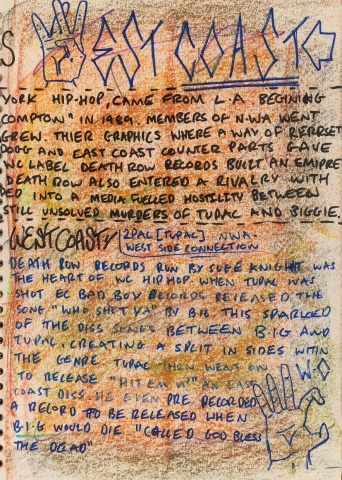 S WEST COAST
YORK HIP-HOP, CAME FROM L.A BEGNING
COMPTON" IN 1989. MEMBERS OF N.WA WENT
GREW. THIER GRAPHICS WHERE A WAY OF REPRSET
DOGG AND EAST COAST COUNTER PARTS GAVE
WC LABEL DEATH ROW RECORDS BUILT AN EMPIRE
DEATH ROW ALSO ENTERED A RIVALRY WITH
PED INTO A MEDIA FUELLED HOSTILITY BETWEEN
STILL UNSOLVED MURDERS OF TUPAC AND BIGGIE.
WESTCOAST/ 2PAC [TUPAC] NWA.
WEST SIDE CONNECTION
DEATH ROW RECORDS RUN BY SUGE KNIGHT WAS
THE HEART OF WC HIPHOP. WHEN TUPAC WAS
SHOT EC BAD BOY RECORDS RELEASED THE
SONG "WHO SHOT YA" BY B.I.G. THIS SPARCED
OF THE DISS SONGS BETWEEN B.I.G AND
TUPAC, CREATING A SPLIT IN SIDES WITIN
THE GENRE TUPAC THEN WENT ON
TO RELEASE "HIT EM UP" AN EAST
COAST DISS. HE EVEN PRE RECORDED
A RECORD TO BE RELEASED WHEN
B.I.G WOULD DIE "CALLED GOD BLESS
THE DEAD"